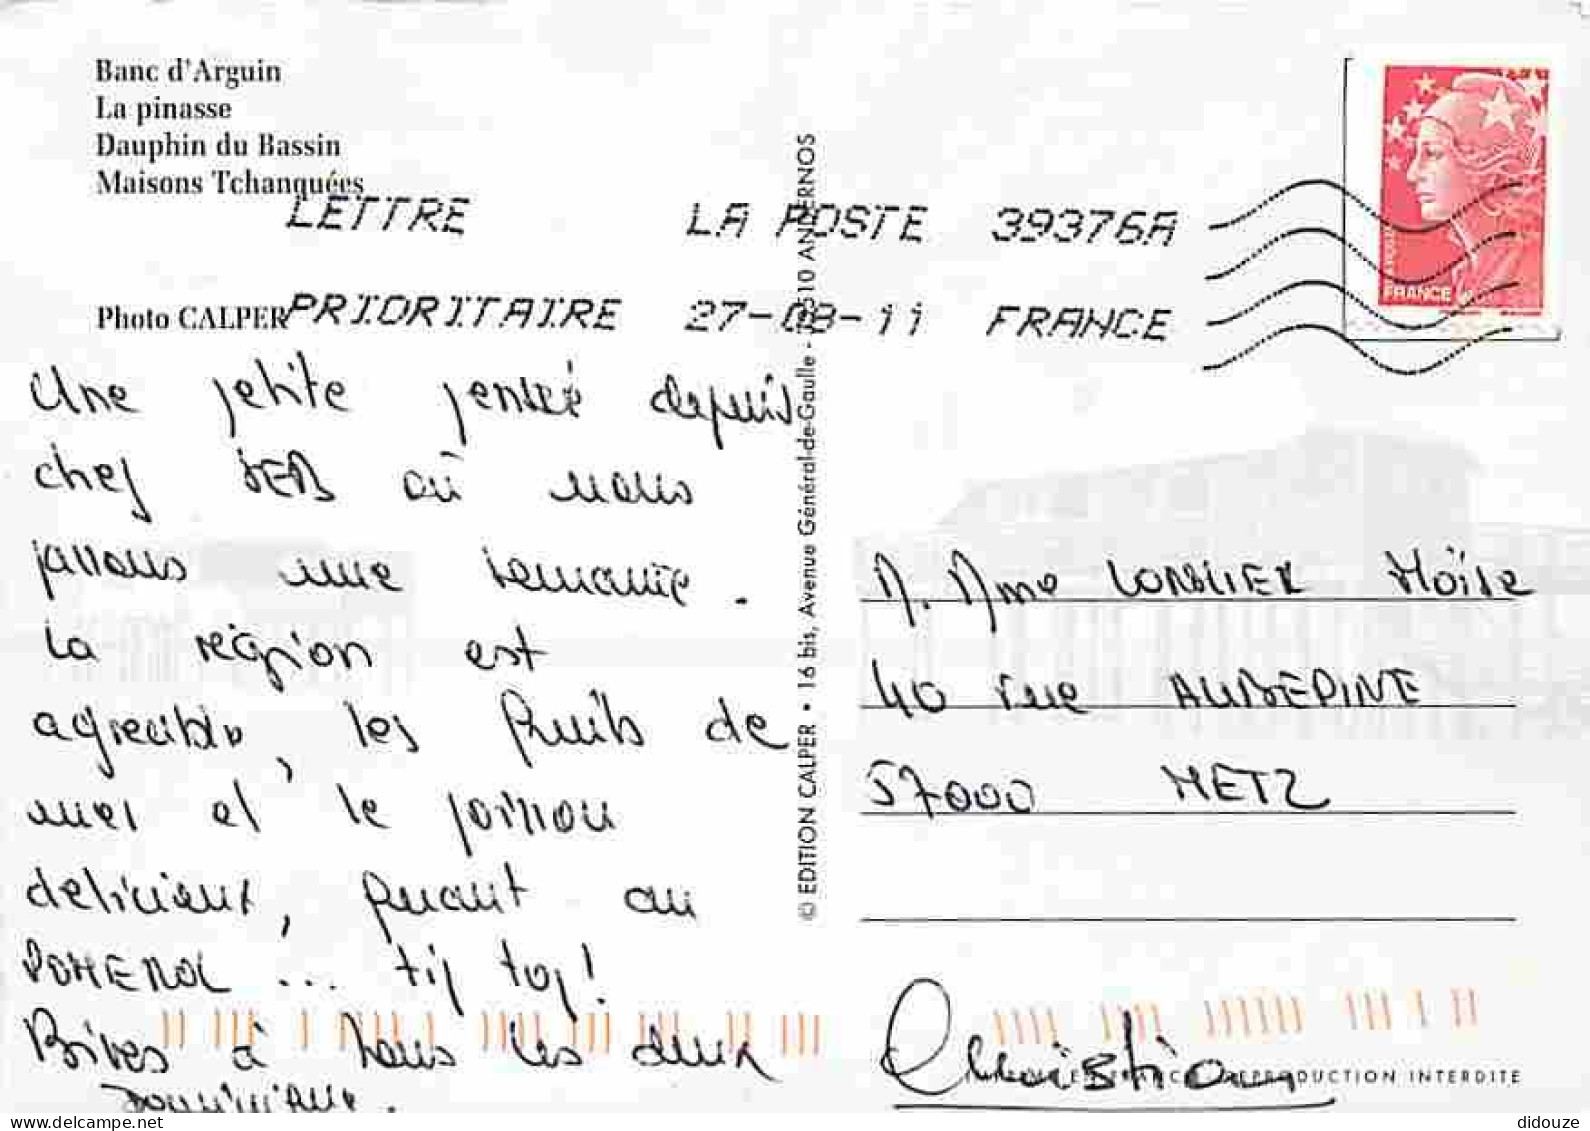 Banc d'Arguin
La pinasse
Dauphin du Bassin
Maisons Tchanquées
LETTRE LA POSTE 39376A
Photo CALPER PRIORITAIRE 27-08-11 FRANCE
FRANCE
Une petite pensée depuis
chez SEB où nous
passons une semaine.
La région est
agréable, les fruits de
mer et le poisson
délicieux, quant au
POMEROL ... tip top!
Bises à tous les deux
Dominique.
© EDITION CALPER • 16 bis, Avenue Général-de-Gaulle - 510 ANDERNOS
M. Mme Moïse
40 rue AUBEPINE
57000 METZ
Christian
REPRODUCTION INTERDITE
didouze